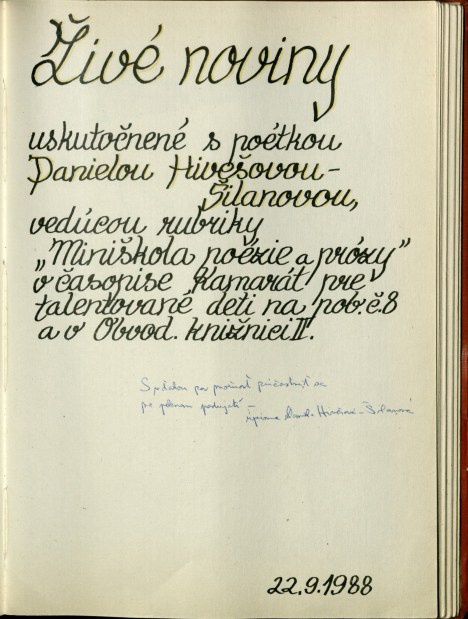 Živé noviny
uskutočnené s poétkou
Danielou Hivešovou-
Šilanovou,
vedúcou rubriky
„Miniškola poézie a prózy"
v časopise Kamarát pre
talentované deti na pob. č. 8
a v Obvod. knižnici II.
S
pe podujatí –
úprimne Hivešová-Šilanová
22.9.1988